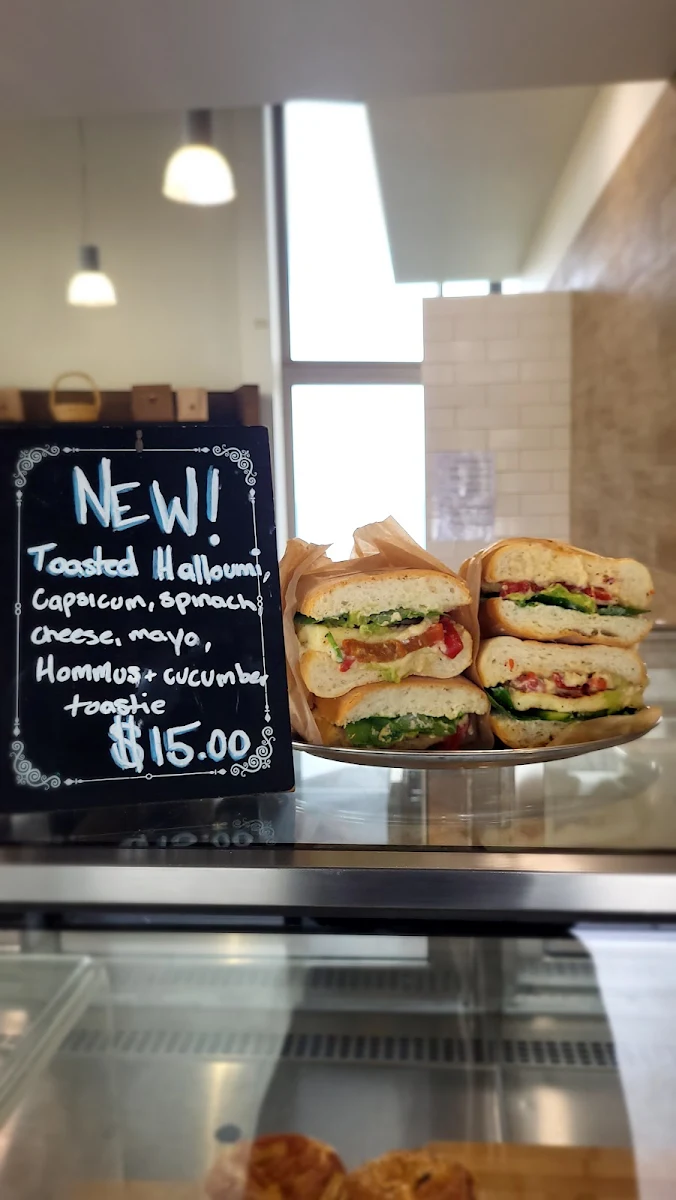 NEW!
Toasted Halloumi,
Capsicum, spinach
cheese, mayo,
Hommus + cucumber
toastie
$15.00